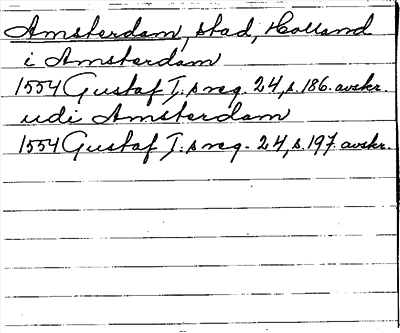 Amsterdam, stad, Holland
i Amsterdam
1554 Gustaf I:s reg. 24, s. 186. avskr.
udi Amsterdam
1554 Gustaf I:s reg. 24, s. 197. avskr.